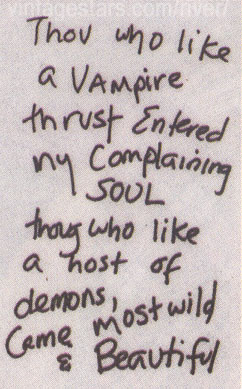 vintagestars.com/river/
Thou who like
a VAmpire
thrust Entered
my Complaining
SOUL
thou who like
a host of
demons,
Came most wild
& Beautiful